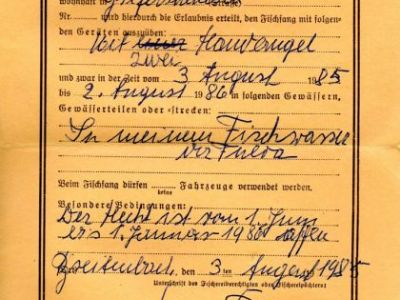 wohnhaft in
Nr. wird hierdurch die Erlaubnis erteilt, den Fischfang mit folgen-
den Geräten auszuüben:
Mit Handangel
zwei
und zwar in der Zeit vom 3 August 1985
bis 2. August 1986 in folgenden Gewässern,
Gewässerteilen oder =strecken:
In meinem Fischwasser
der Fulda
Beim Fischfang dürfen keine Fahrzeuge verwendet werden.
Besondere Bedingungen:
Der Hecht ist vom 1. Juni
bis 1. Januar 1986 offen
Breitenbach, den 3 ten August 1985
Unterschrift des Fischereiberechtigten oder Fischereipächters: